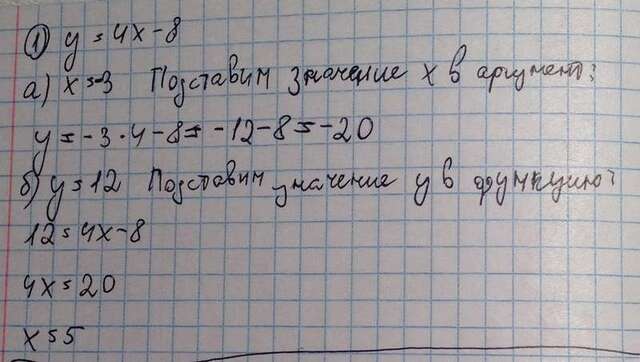 1) y = 4x - 8
а) x = -3 Подставим значение x в аргумент:
y = -3 · 4 - 8 = -12 - 8 = -20
б) y = 12 Подставим значение y в функцию:
12 = 4x - 8
4x = 20
x = 5